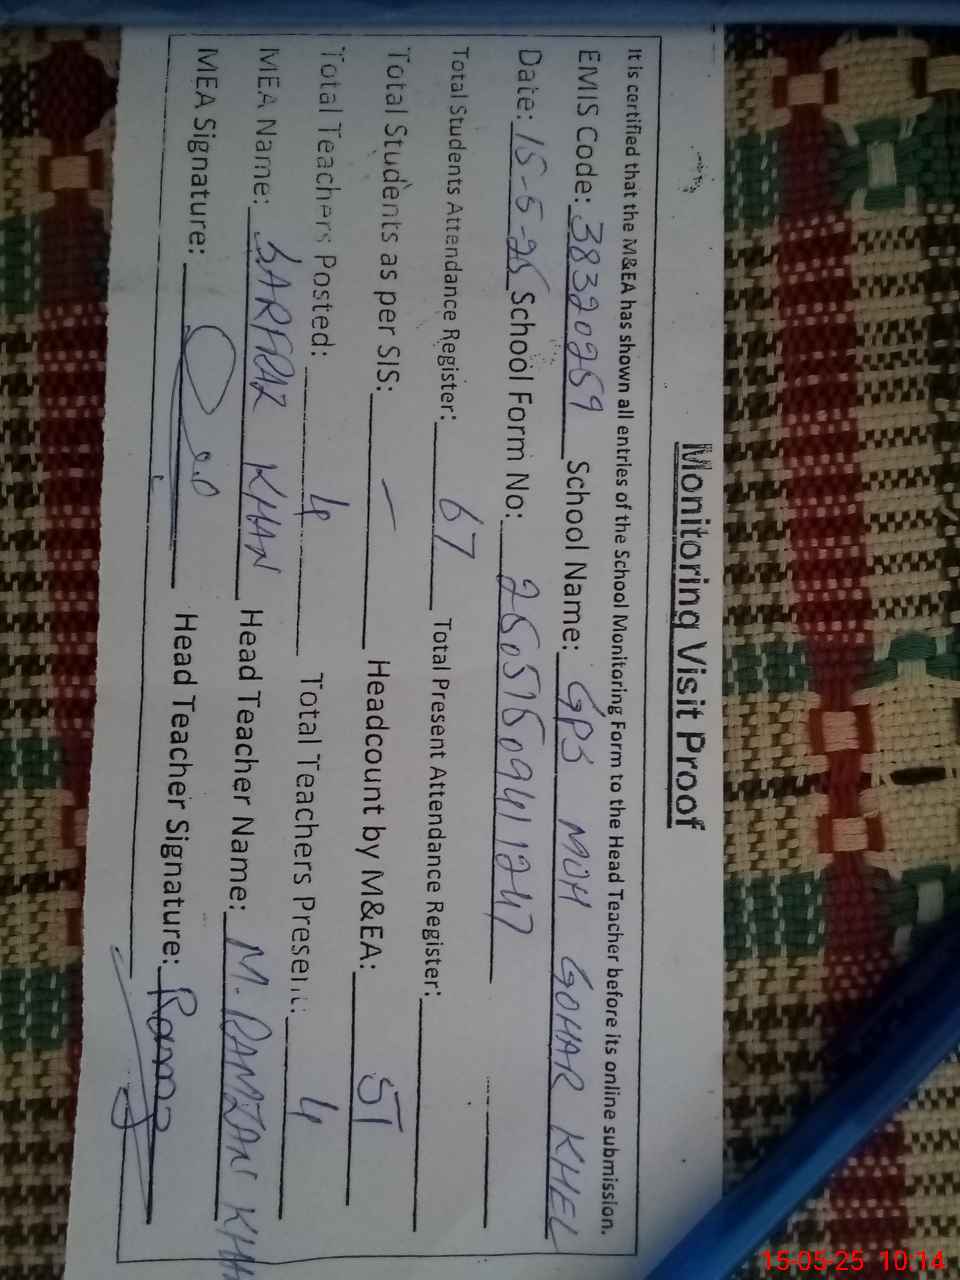 Monitoring Visit Proof
It is certified that the M&EA has shown all entries of the School Monitoring Form to the Head Teacher before its online submission.
EMIS Code: 38320259 School Name: GPS MOH GOHAR KHEL
Date: 15-5-25 School Form No: 250515094112 47
Total Students Attendance Register: 67 Total Present Attendance Register:
Total Students as per SIS: — Headcount by M&EA: 51
Total Teachers Posted: 4 Total Teachers Present: 4
MEA Name: SARFARAZ KHAN Head Teacher Name: M. RAMZAN KHAN
MEA Signature: Head Teacher Signature: Ramz
15-05-25 10:14